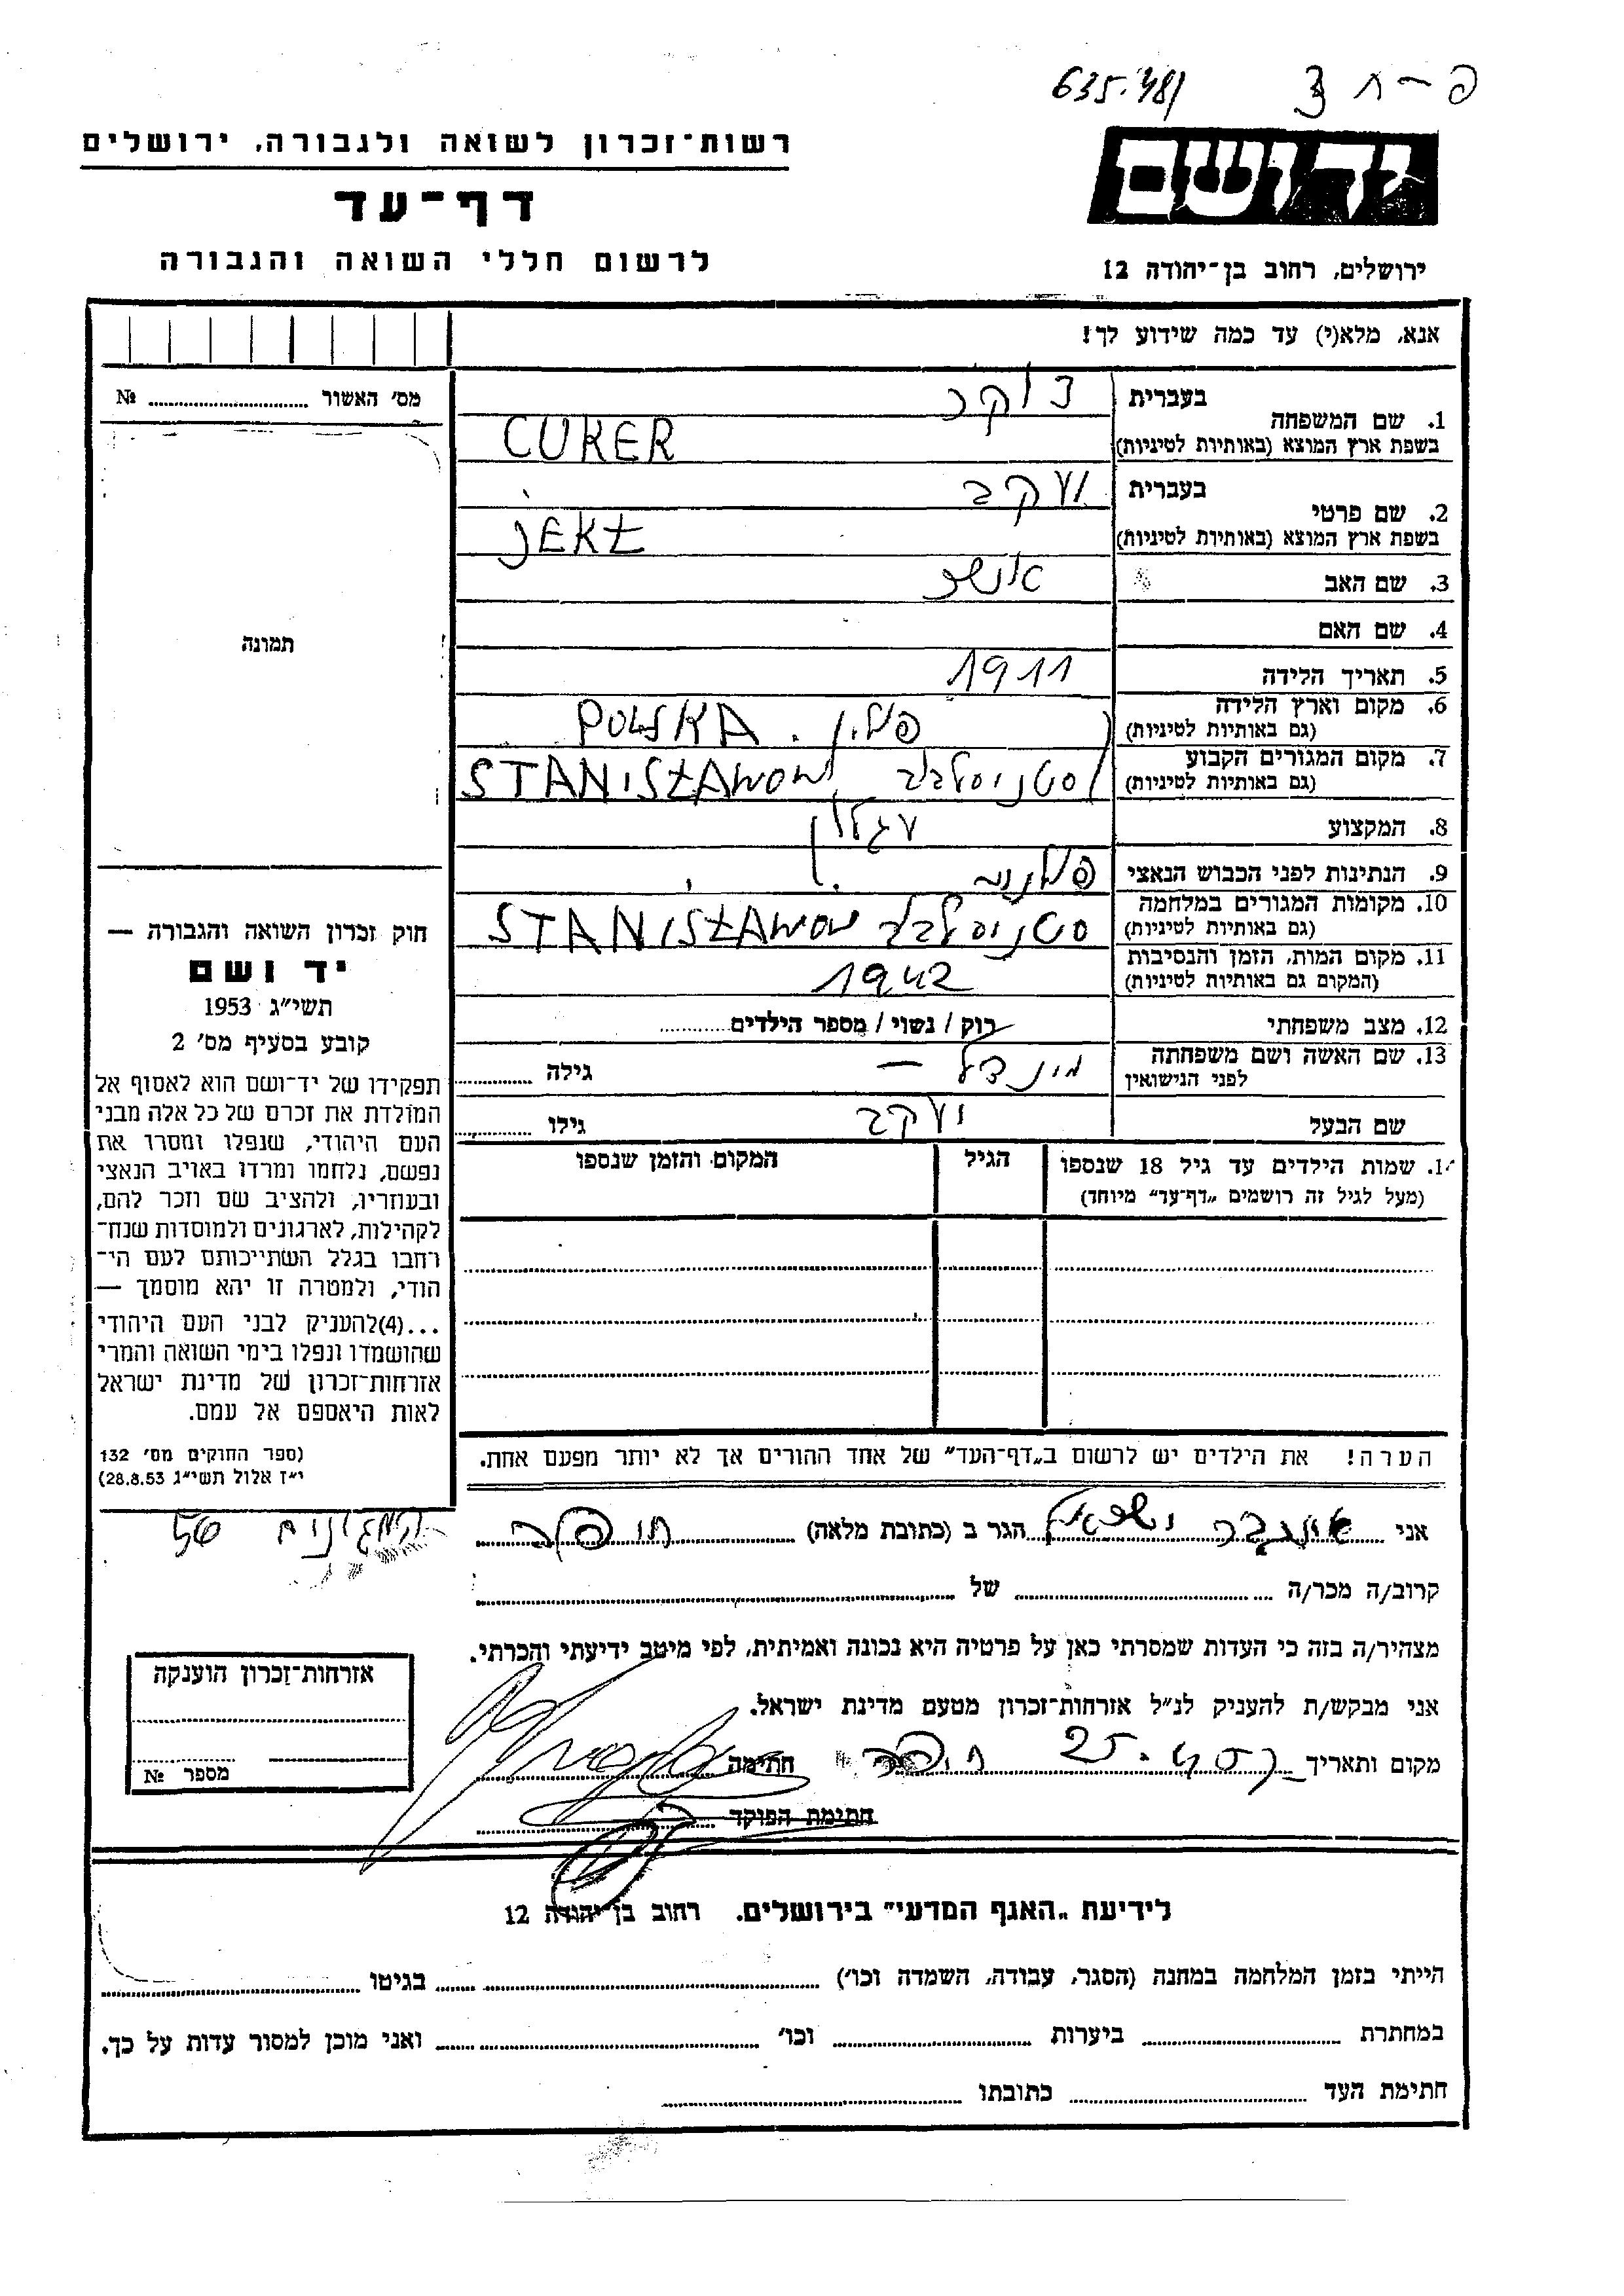 635.481
פ-ח צ
יד ושם
רשות־זכרון לשואה ולגבורה, ירושלים
דף־עד
לרשום חללי השואה והגבורה
ירושלים, רחוב בן־יהודה 12
אנא, מלא(י) עד כמה שידוע לך!
מס׳ האשור № 
1. שם המשפחה
בעברית צוקר
בשפת ארץ המוצא (באותיות לטיניות) CUKER
2. שם פרטי
בעברית יעקב
בשפת ארץ המוצא (באותיות לטיניות) JEKŁ
3. שם האב אנשל
4. שם האם
5. תאריך הלידה 1911
6. מקום וארץ הלידה (גם באותיות לטיניות) פולין. POLSKA
7. מקום המגורים הקבוע (גם באותיות לטיניות) סטניסלבב STANISŁAWOW
8. המקצוע עגלון
9. הנתינות לפני הכבוש הנאצי פולנית
10. מקומות המגורים במלחמה (גם באותיות לטיניות) סטניסלבב STANISŁAWOW
11. מקום המות, הזמן והנסיבות (המקום גם באותיות לטיניות) 1942
12. מצב משפחתי רוק / נשוי / מספר הילדים
13. שם האשה ושם משפחתה לפני הנישואין מינדל — גילה
שם הבעל יעקב גילו
14. שמות הילדים עד גיל 18 שנספו
(מעל לגיל זה רושמים „דף־עד” מיוחד)
הגיל
המקום והזמן שנספו
תמונה
חוק זכרון השואה והגבורה —
יד ושם
תשי״ג 1953
קובע בסעיף מס׳ 2
תפקידו של יד־ושם הוא לאסוף אל
המולדת את זכרם של כל אלה מבני
העם היהודי, שנפלו ומסרו את
נפשם, נלחמו ומרדו באויב הנאצי
ובעוזריו, ולהציב שם וזכר להם,
לקהילות, לארגונים ולמוסדות שנח־
רבו בגלל השתייכותם לעם הי־
הודי, ולמטרה זו יהא מוסמך —
...(4)להעניק לבני העם היהודי
שהושמדו ונפלו בימי השואה והמרי
אזרחות־זכרון של מדינת ישראל
לאות היאספם אל עמם.
(ספר החוקים מס׳ 132
י״ז אלול תשי״ג 28.8.53)
הערה! את הילדים יש לרשום ב„דף־העד” של אחד ההורים אך לא יותר מפעם אחת.
אני ישראל הגר ב (כתובת מלאה) חיפה 56
קרוב/ה מכר/ה של
מצהיר/ה בזה כי העדות שמסרתי כאן על פרטיה היא נכונה ואמיתית, לפי מיטב ידיעתי והכרתי.
אני מבקש/ת להעניק לנ״ל אזרחות־זכרון מטעם מדינת ישראל.
מקום ותאריך 25. חיפה חתימה
חתימת הפוקד
אזרחות־זכרון הוענקה
מספר №
לידיעת „האגף המדעי” בירושלים. רחוב בן יהודה 12
הייתי בזמן המלחמה במחנה (הסגר, עבודה, השמדה וכו׳) בגיטו
במחתרת ביערות וכו׳ ואני מוכן למסור עדות על כך.
חתימת העד כתובתו